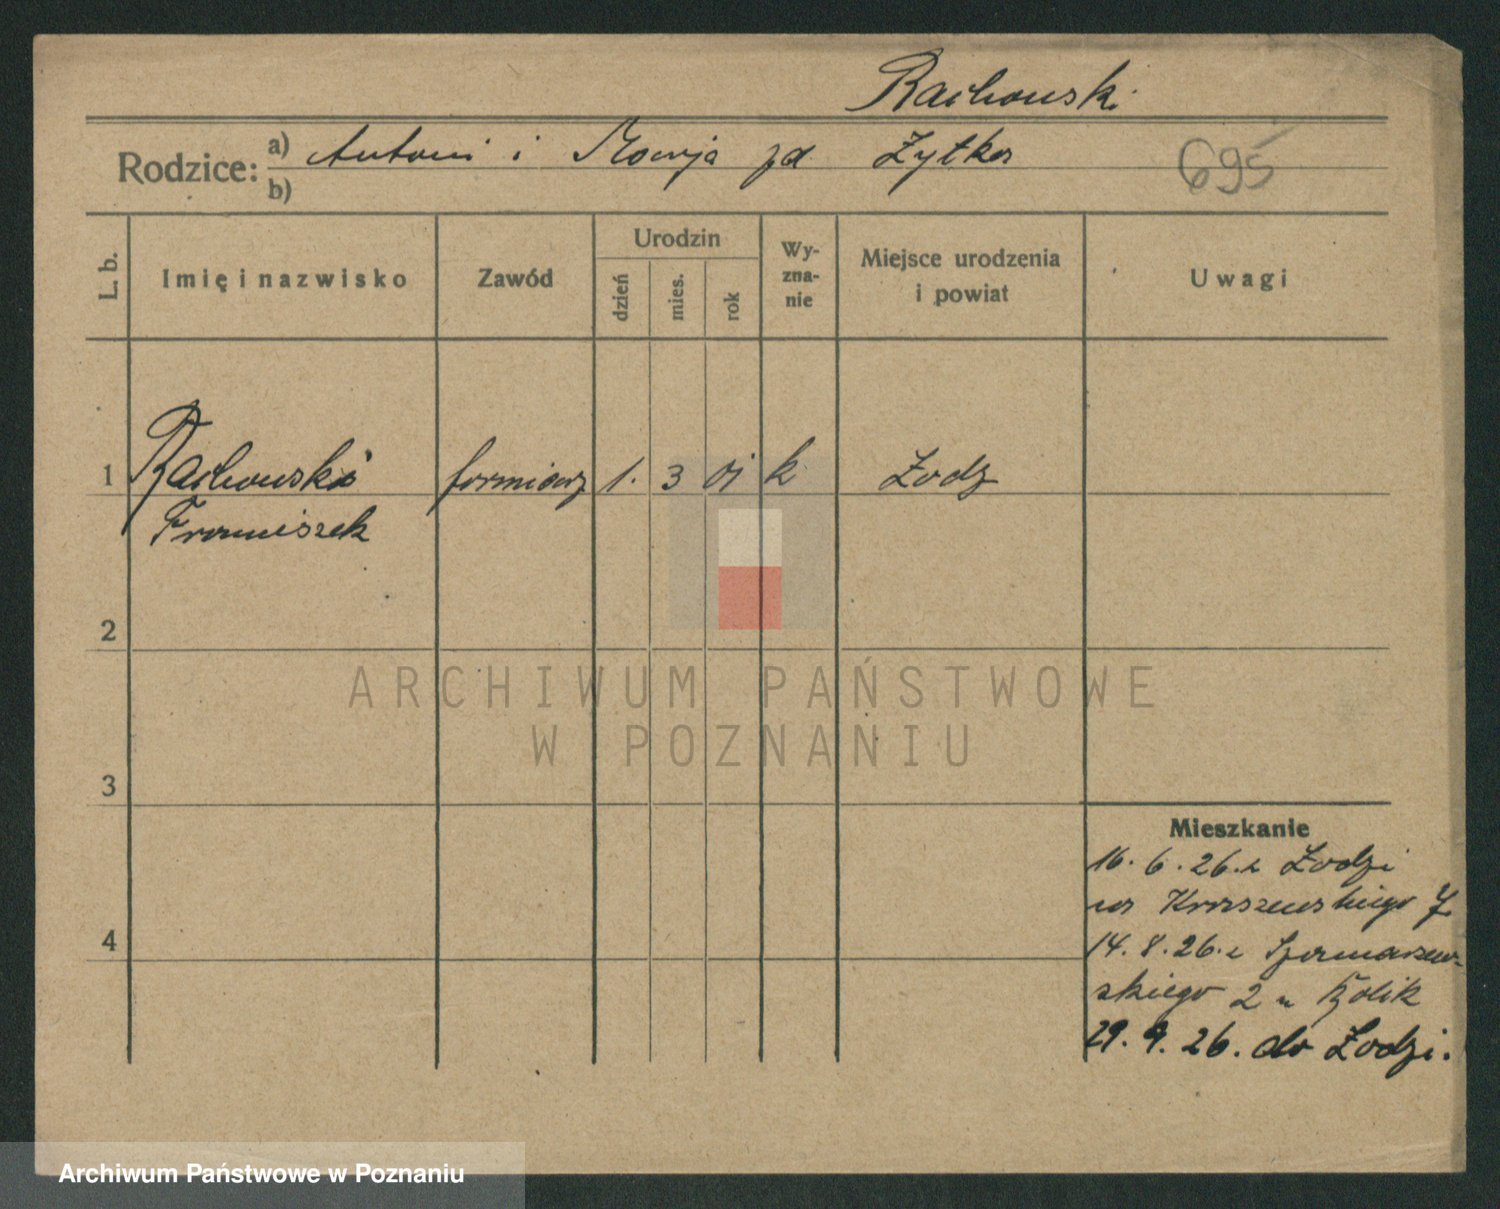 Rachowski
Rodzice: a) Antoni i Marja zd Żytka
b)
695
L. b.
Imię i nazwisko
Zawód
Urodzin
dzień
mies.
rok
Wy-
zna-
nie
Miejsce urodzenia
i powiat
Uwagi
1 Rachowski formierz 1. 3 01 k Łodz
Franciszek
2
ARCHIWUM PAŃSTWOWE
W POZNANIU
3
Mieszkanie
16. 6. 26. z Łodzi
na Kraszewskiego 7.
4
14. 8. 26. z Szamarzew-
skiego 2 u Kolik
29. 9. 26. do Łodzi.
Archiwum Państwowe w Poznaniu